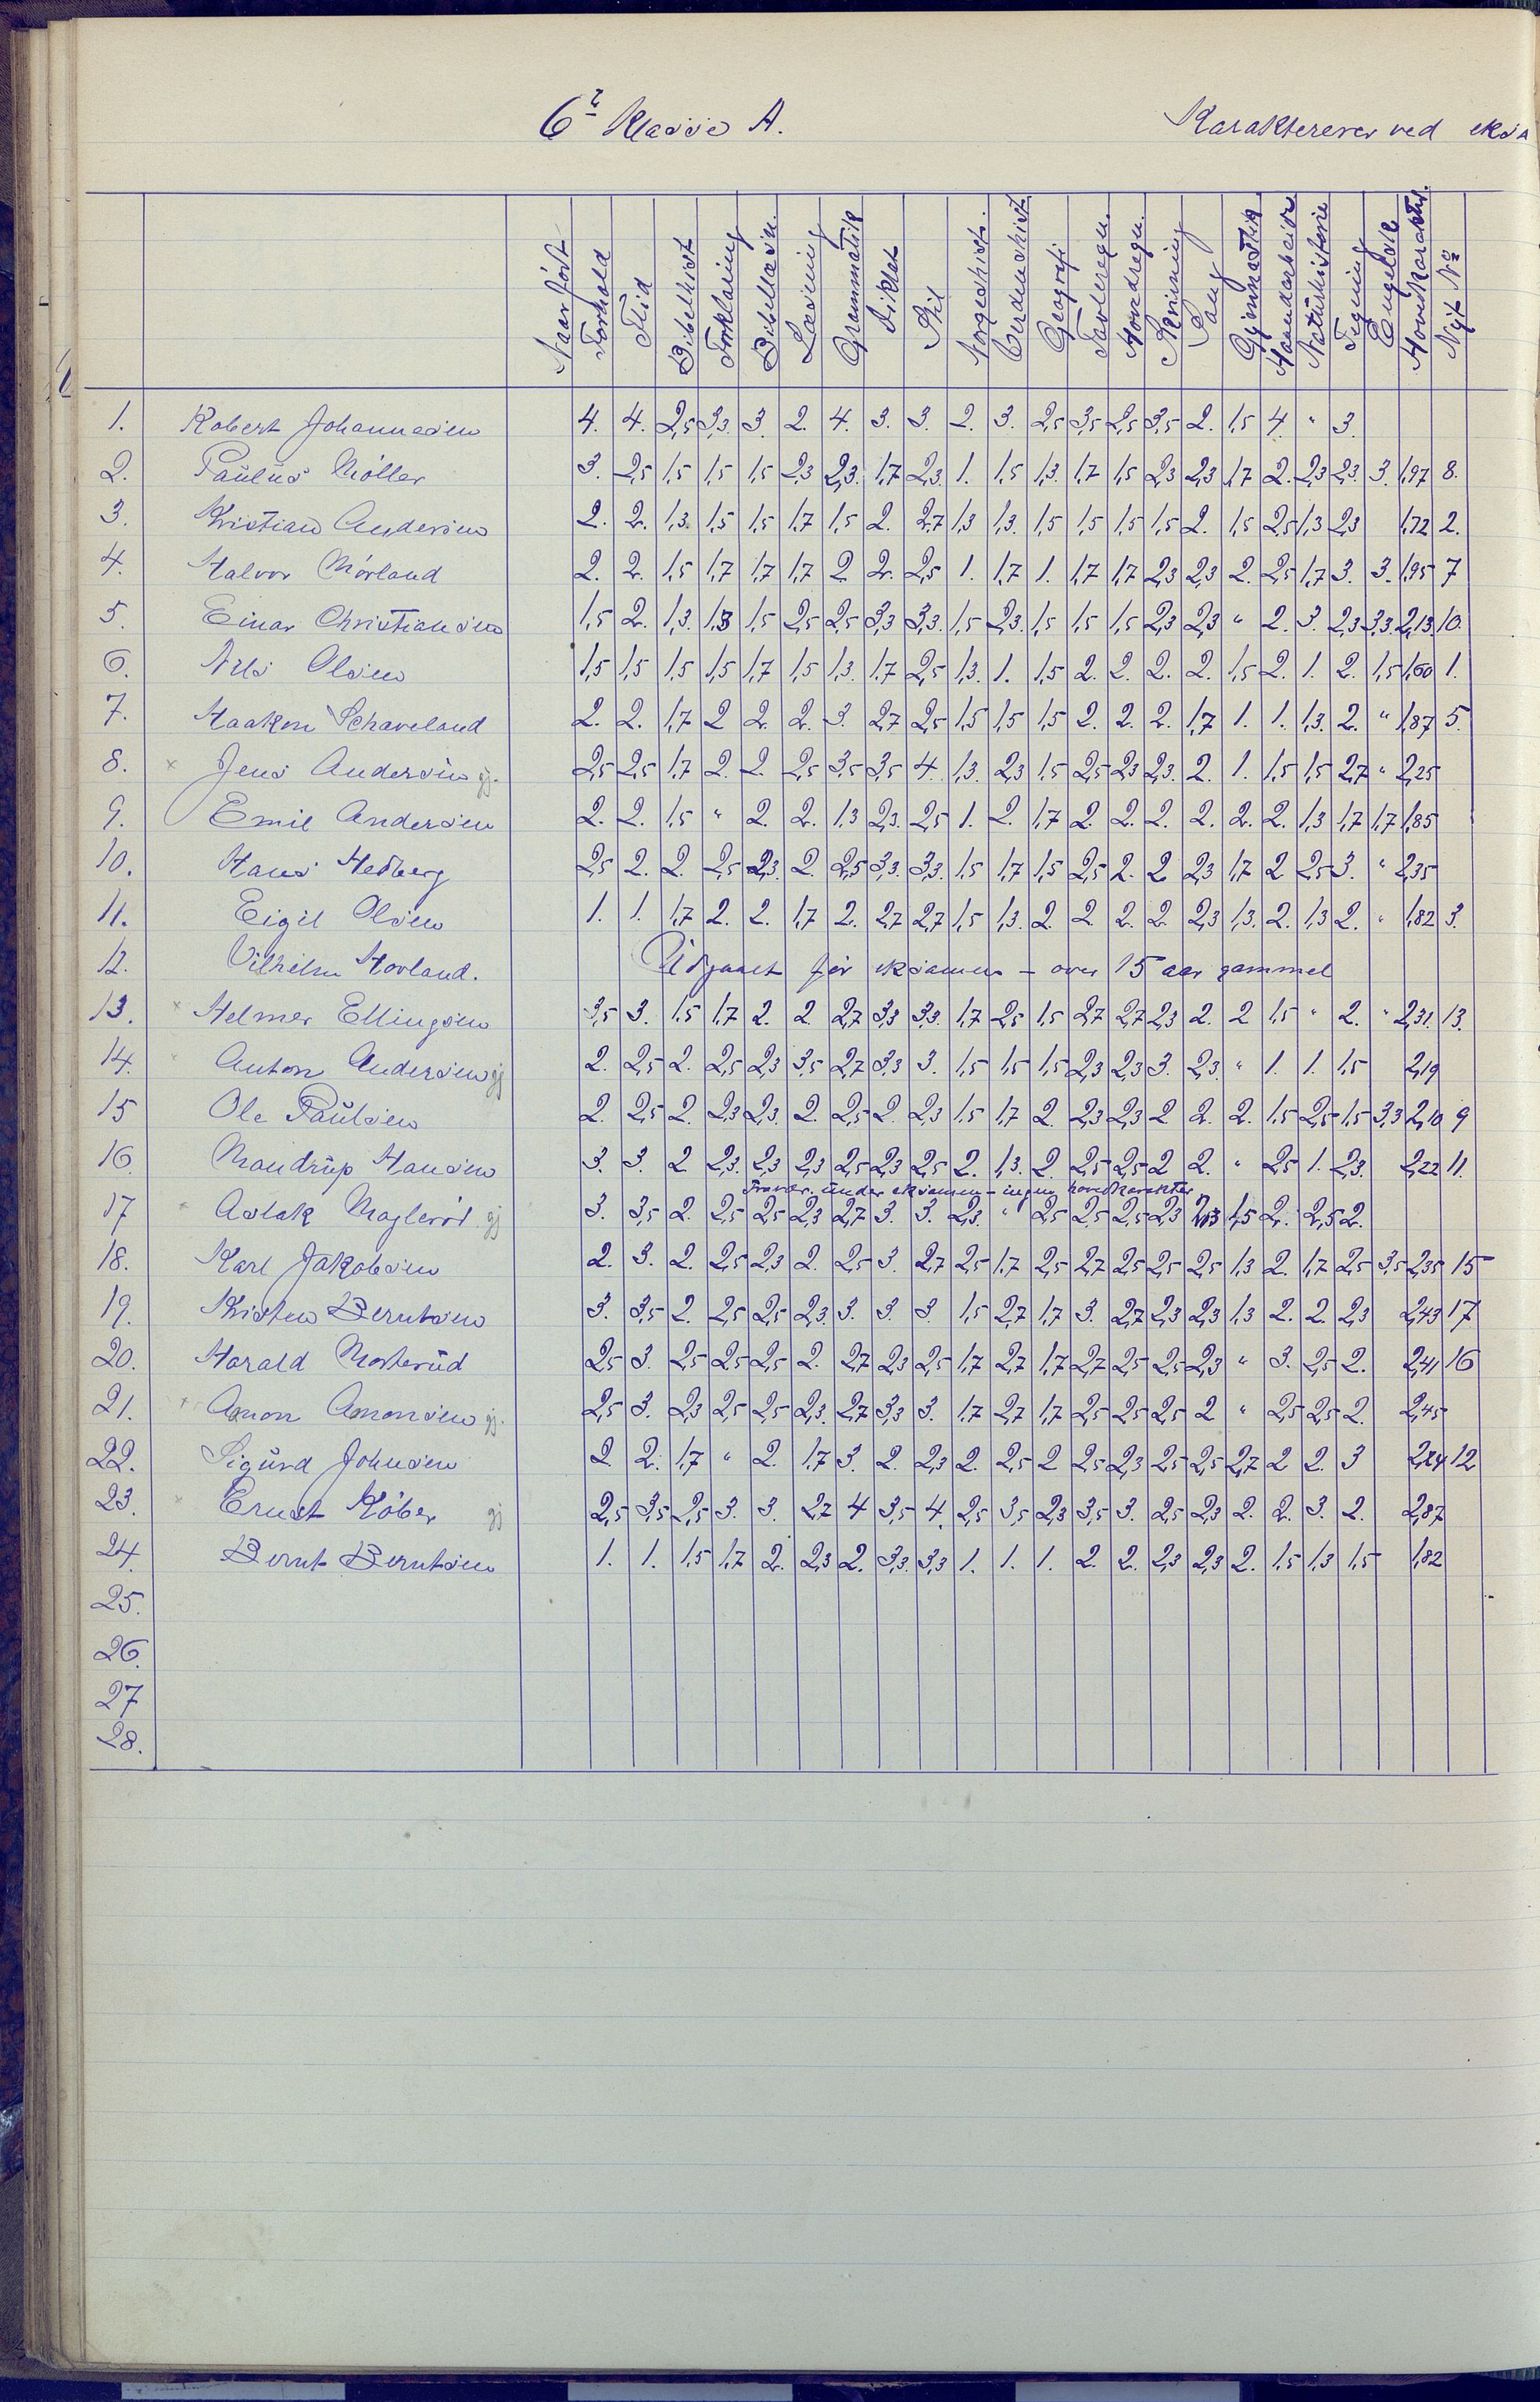 6t Klasse A. Karakterer ved eksa
Naar født Forhold Flid Bibelhist Forklaring Bibellæsn. Læsning Grammatik Diktat Stil Norgeshist. Verdenshist. Geografi Tavleregn. Hovedregn. Skrivning Sang Gymnastik Haandarbeide Naturhistorie Tegning Engelsk Hovedkarakter. Nyt No
1. Robert Johannesen 4. 4. 2,5 3,3. 3. 2. 4. 3. 3. 2. 3. 2,5 3,5 2,5 3,5 2. 1,5 4 " 3.
2. Paulus Möller 3. 2,5 1,5 1,5 1,5 2,3 2,3. 1,7 2,3 1. 1,5 1,3. 1,7 1,5 2,3 2,3 1,7 2. 2,3 2,3. 3. 1,97 8.
3. Kristian Andersen 2. 2. 1,3. 1,5 1,5 1,7 1,5 2. 2,7 1,3 1,3. 1,5 1,5 1,5 1,5 2. 1,5 2,5 1,3 2,3 1,72 2.
4. Halvor Mörland 2. 2. 1,5 1,7 1,7 1,7 2 2. 2,5 1. 1,7 1. 1,7 1,7 2,3 2,3 2. 2,5 1,7 3. 3. 1,95 7
5. Einar Christiansen 1,5 2. 1,3. 1,3 1,5 2,5 2,5 3,3 3,3. 1,5 2,3. 1,5 1,5 1,5 2,3 2,3 " 2. 3. 2,3 3,3. 2,13 10.
6. Nils Olsen 1,5 1,5 1,5 1,5 1,7 1,5 1,3. 1,7 2,5 1,3. 1. 1,5 2. 2. 2. 2. 1,5 2. 1. 2. 1,5 1,60 1.
7. Haakon Schaveland 2. 2. 1,7 2 2. 2. 3. 2,7 2,5 1,5 1,5 1,5 2. 2. 2. 1,7 1. 1. 1,3. 2. " 1,87 5.
8. × Jens Andersen gj. 2,5 2,5 1,7 2. 2. 2,5 3,5 3,5 4. 1,3. 2,3 1,5 2,5 2,3 2,3. 2. 1. 1,5 1,5 2,7 " 2,25
9. Emil Andersen 2. 2. 1,5 " 2. 2. 1,3 2,3. 2,5 1. 2. 1,7 2. 2. 2. 2. 2. 2. 1,3 1,7 1,7 1,85
10. Hans Hedberg 2,5 2. 2. 2,5 2,3. 2. 2,5 3,3. 3,3. 1,5 1,7 1,5 2,5 2. 2 2,3 1,7 2 2,5 3. " 2,35
11. Eigil Olsen 1. 1. 1,7 2. 2. 1,7 2. 2,7 2,7 1,5 1,3. 2. 2. 2. 2. 2,3 1,3. 2. 1,3 2. " 1,82 3.
12. Vilhelm Hovland. Udgaaet før eksamen – over 15 aar gammel
13. × Helmer Ellingsen 3,5 3. 1,5 1,7 2. 2. 2,7 3,3 3,3. 1,7 2,5 1,5 2,7 2,7 2,3 2. 2 1,5 " 2. " 2,31. 13.
14. × Anton Andersen gj 2. 2,5 2. 2,5 2,3 3,5 2,7 3,3 3. 1,5 1,5 1,5 2,3 2,3 3. 2,3. " 1. 1. 1,5 2,19
15 Ole Paulsen 2. 2,5 2. 2,3 2,3. 2. 2,5 2. 2,3 1,5 1,7 2. 2,3 2,3 2 2. 2. 1,5 2,5 1,5 3,3 2,10 9
16. Mandrup Hansen 3. 3. 2 2,3. 2,3 2,3 2,5 2,3 2,5 2. 1,3. 2. 2,5 2,5 2 2. " 2,5 1. 2,3. 2,22 11.
Fravær. under eksamen – ingen hovedkarakter
17 × Aslak Magleröd gj 3. 3,5 2. 2,5 2,5 2,3 2,7 3. 3. 2,3. " 2,5 2,5 2,5 2,3 2,3 1,5 2. 2,5 2.
18. Karl Jakobsen 2. 3. 2. 2,5 2,3 2. 2,5 3. 2,7 2,5 1,7 2,5 2,7 2,5 2,5 2,5 1,3 2. 1,7 2,5 3,5 2,35 15
19. Kristen Berntsen 3. 3,5 2. 2,5 2,5 2,3. 3. 3. 3. 1,5 2,7 1,7 3. 2,7 2,3 2,3 1,3 2. 2. 2,3 2,43 17
20. Harald Mosterüd 2,5 3. 2,5 2,5 2,5 2. 2,7 2,3 2,5 1,7 2,7 1,7 2,7 2,5 2,5 2,3 " 3. 2,5 2. 2,41 16
21. × Amon Amonsen gj. 2,5 3. 2,3 2,5 2,5 2,3. 2,7 3,3 3. 1,7 2,7 1,7 2,5 2,5 2,5 2 " 2,5 2,5 2. 2,45
22. Sigürd Johnsen 2. 2. 1,7 " 2. 1,7 3. 2. 2,3 2. 2,5 2 2,5 2,3 2,5 2,5 2,7 2 2. 3 2,24 12
23. × Ernst Köber gj 2,5 3,5 2,5 3. 3. 2,7 4 3,5 4. 2,5 3,5 2,3 3,5 3. 2,5 2,3 2. 2. 3. 2. 2,87
24. Bernt Berntsen 1. 1. 1,5 1,7 2. 2,3 2. 3,3. 3,3 1. 1. 1. 2. 2. 2,3 2,3 2. 1,5 1,3 1,5 1,82
25.
26.
27
28.